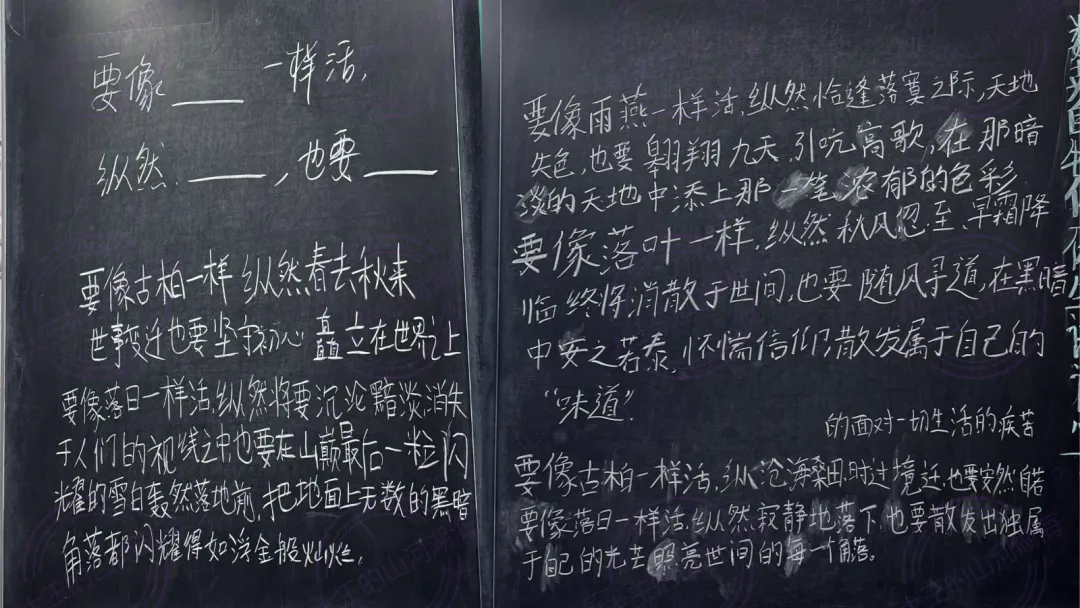 要像____一样活，
纵然____，也要____
要像古柏一样纵然春去秋来
世事变迁也要坚守初心矗立在世界之上
要像落日一样活，纵然将要沉沦黯淡消失
于人们的视线之中，也要在山巅最后一粒闪
耀的雪白轰然落地前，把地面上无数的黑暗
角落都闪耀得如浮金般灿烂。
要像雨燕一样活，纵然恰逢落寞之际，天地
失色，也要翱翔九天，引吭高歌，在那暗
淡的天地中添上那一笔浓郁的色彩
要像落叶一样，纵然秋风忽至、早霜降
临终将消散于世间，也要随风寻道，在黑暗
中安之若泰，怀惴信仰，散发属于自己的
“味道”。
的面对一切生活的疾苦
要像古柏一样活，纵沧海桑田，时过境迁，也要安然自若
要像落日一样活，纵然寂静地落下，也要散发出独属
于自己的光去照亮世间的每一个角落。